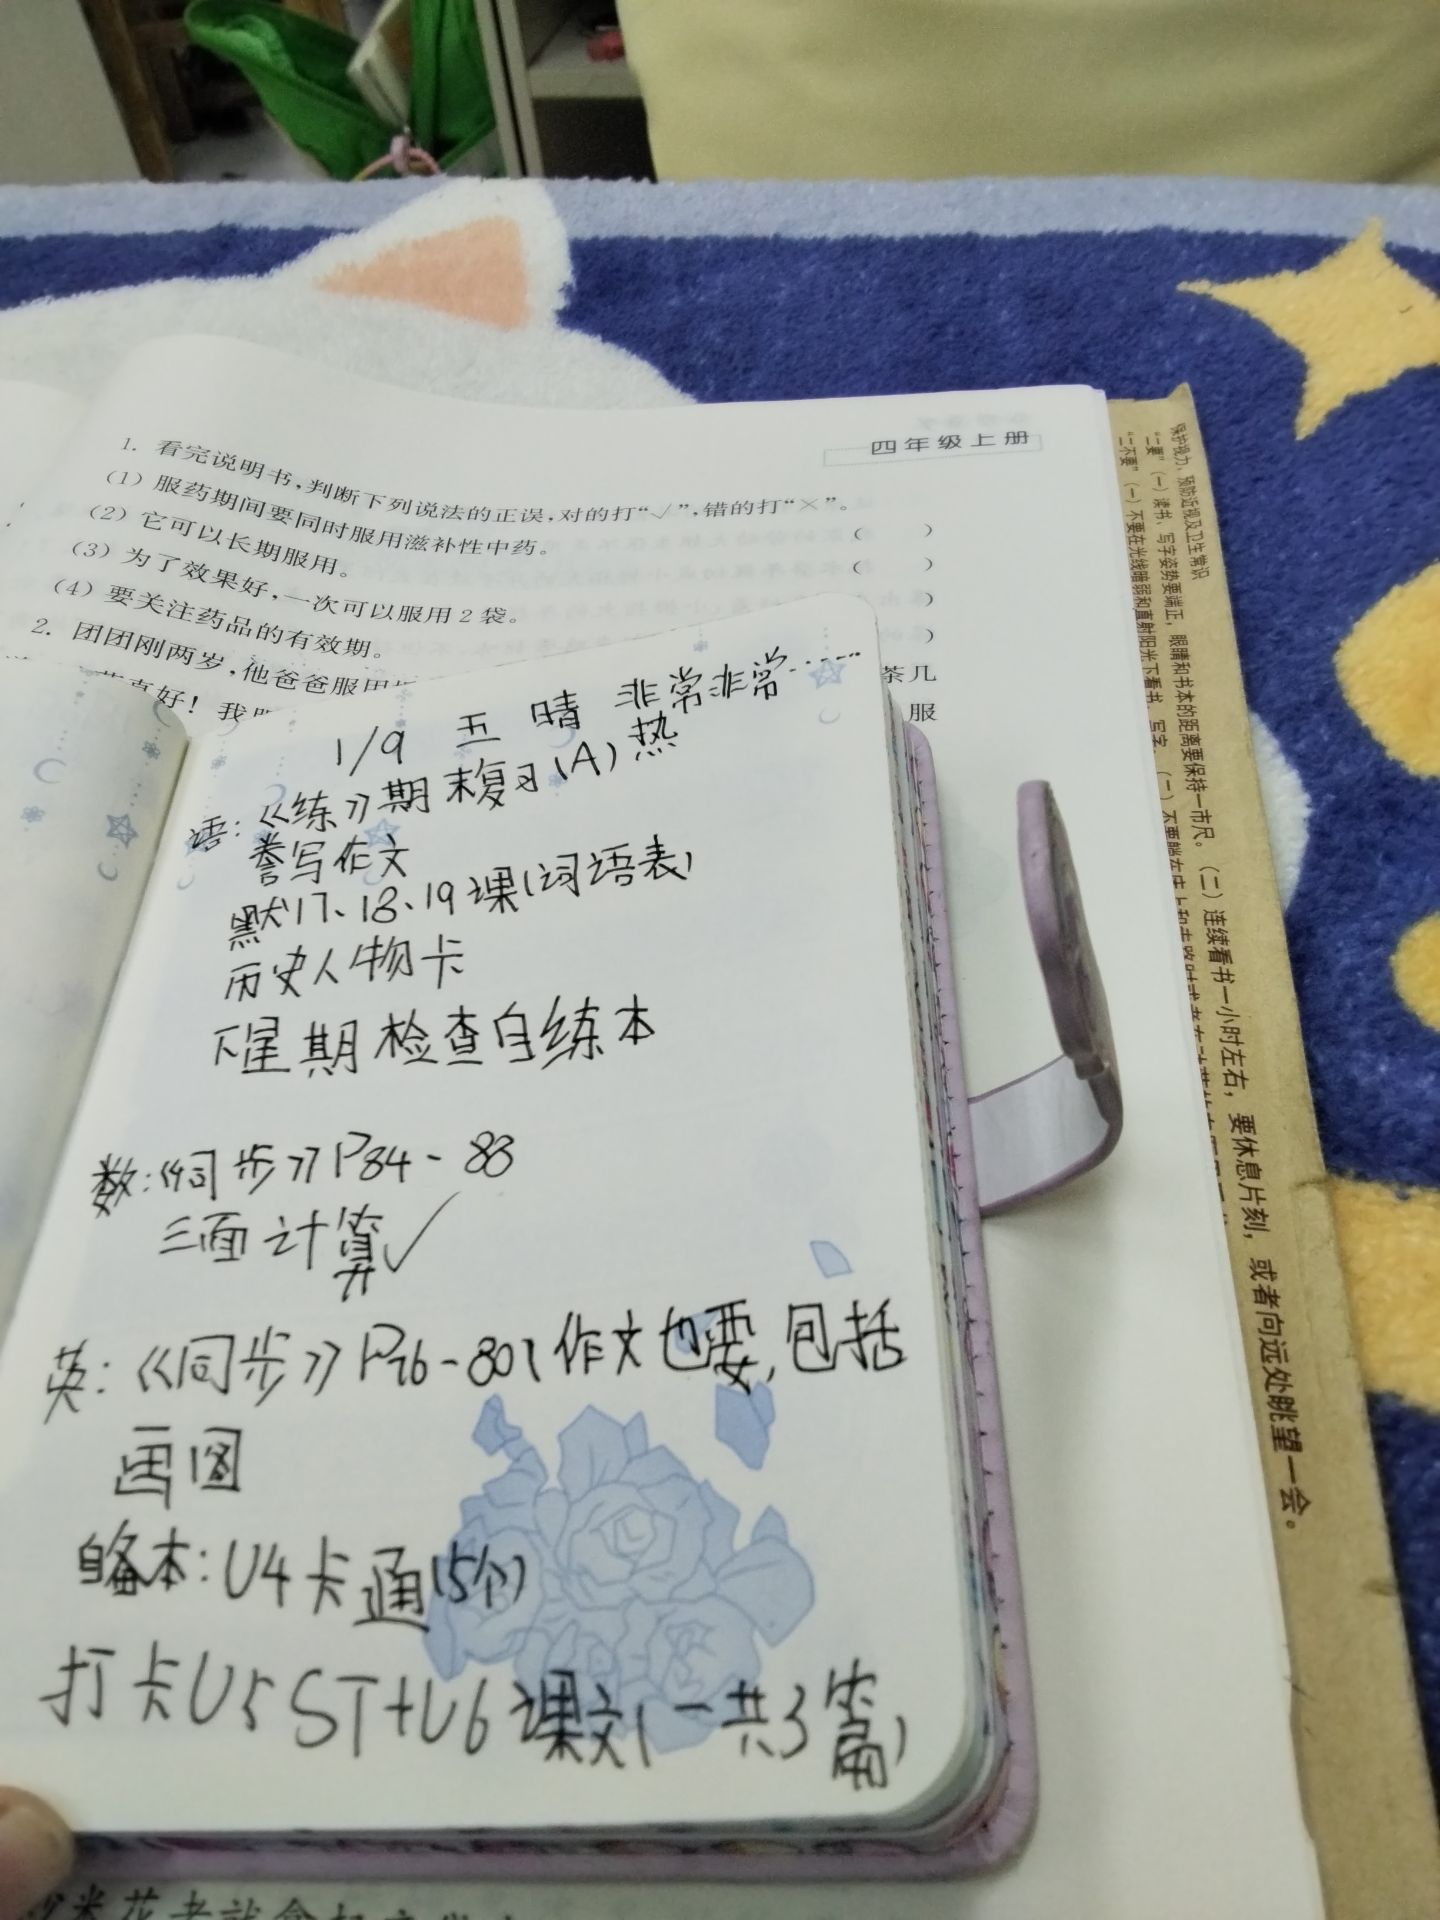 四年级上册
1. 看完说明书,判断下列说法的正误,对的打“√”,错的打“×”。
(1)服药期间要同时服用滋补性中药。 ( )
(2)它可以长期服用。 ( )
(3)为了效果好,一次可以服用2袋。 )
(4)要关注药品的有效期。 )
2. 团团刚两岁,他爸爸服用 茶几
真好!我 服
1/9 五 晴 非常非常……
热
语:《练》期末复习(A)
誊写作文
默17、18、19课(词语表)
历史人物卡
下星期检查自练本
数:《同步》P84-88
三面计算✓
英:《同步》P76-80(作文也要,包括
画图
自备本:U4卡通(5个)
打卡U5 ST+U6课文(一共3篇)
保护视力、预防近视及卫生常识
“二要”(一)读书、写字姿势要端正,眼睛和书本的距离要保持一市尺。(二)连续看书一小时左右,要休息片刻,或者向远处眺望一会。
“二不要”(一)不要在光线暗弱和直射阳光下看书、写字。(二)不要躺在床上和走路时或者在